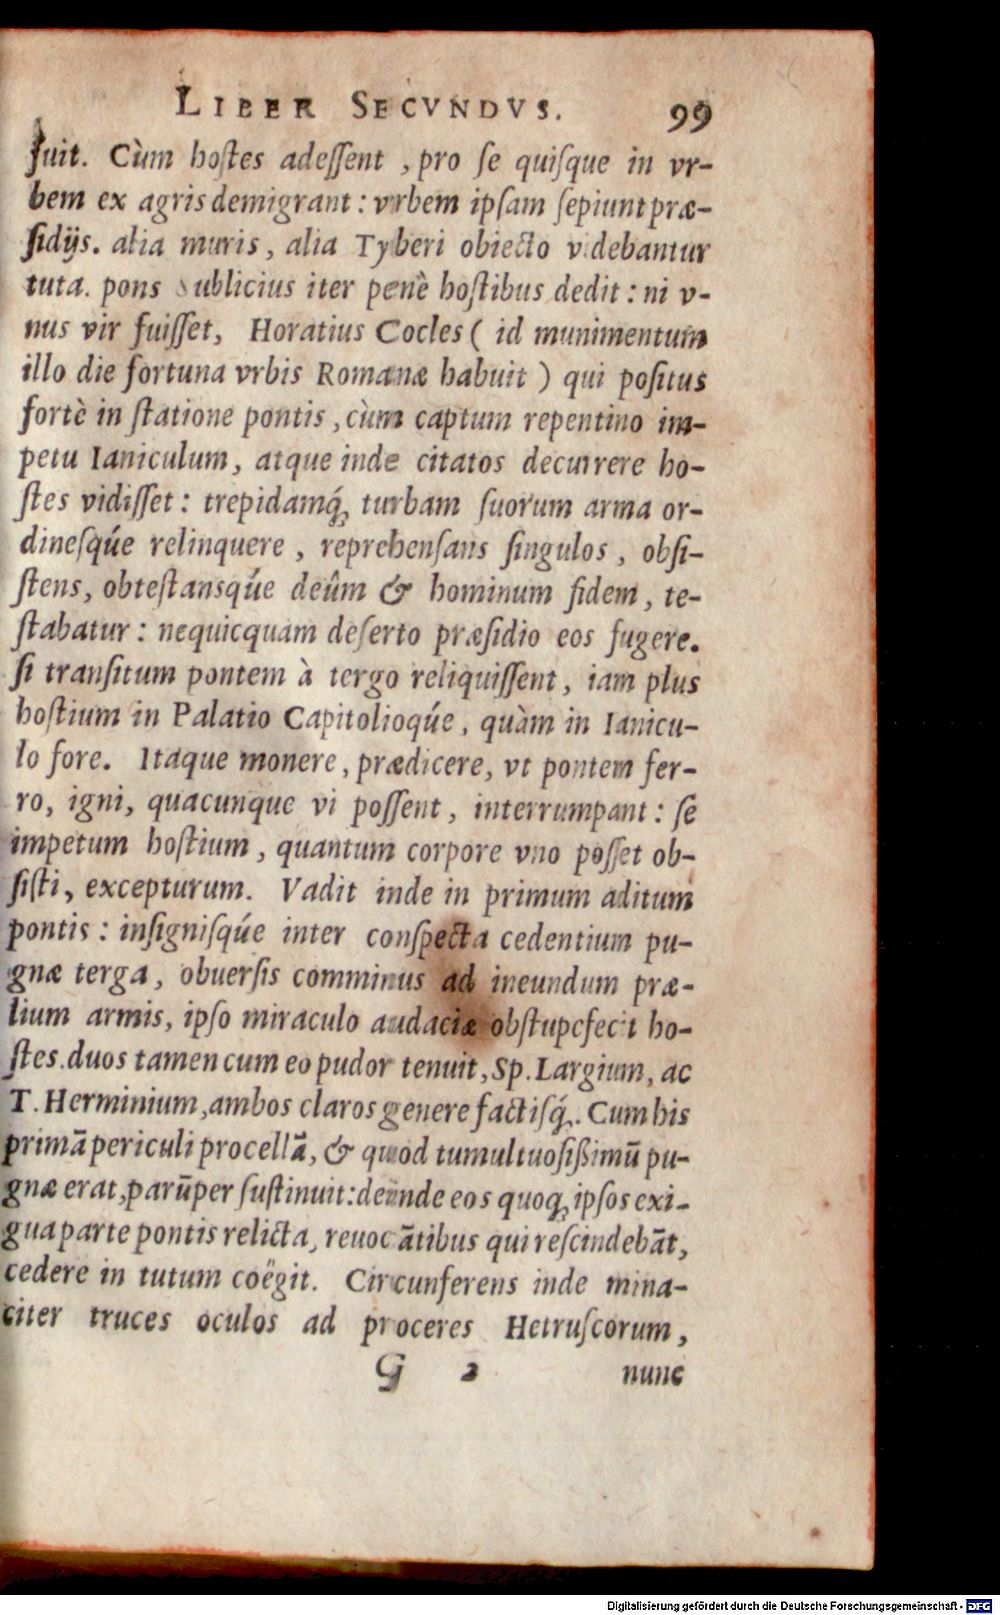 LIBER SECVNDVS. 99
fuit. Cùm hostes adessent, pro se quisque in vr-
bem ex agris demigrant: vrbem ipsam sepiunt præ-
sidijs. alia muris, alia Tyberi obiecto videbantur
tuta. pons Sublicius iter penè hostibus dedit: ni v-
nus vir fuisset, Horatius Cocles (id munimentum
illo die fortuna vrbis Romanæ habuit) qui positus
fortè in statione pontis, cùm captum repentino im-
petu Ianiculum, atque inde citatos decurrere ho-
stes vidisset: trepidamq́; turbam suorum arma or-
dinesq́ue relinquere, reprehensans singulos, obsi-
stens, obtestansq́ue deûm & hominum fidem, te-
stabatur: nequicquam deserto præsidio eos fugere.
si transitum pontem à tergo reliquissent, iam plus
hostium in Palatio Capitolioq́ue, quàm in Ianicu-
lo fore. Itaque monere, prædicere, vt pontem fer-
ro, igni, quacunque vi possent, interrumpant: se
impetum hostium, quantum corpore vno posset ob-
sisti, excepturum. Vadit inde in primum aditum
pontis: insignisq́ue inter conspecta cedentium pu-
gnæ terga, obuersis comminus ad ineundum præ-
lium armis, ipso miraculo audaciæ obstupefecit ho-
stes. duos tamen cum eo pudor tenuit, Sp. Largium, ac
T. Herminium, ambos claros genere factisq́;. Cum his
primā periculi procellā, & quod tumultuosißimū pu-
gnæ erat, parūper sustinuit: deinde eos quoq; ipsos exi-
gua parte pontis relicta, reuocātibus qui rescindebāt,
cedere in tutum coëgit. Circunferens inde mina-
citer truces oculos ad proceres Hetruscorum,
G 2 nunc
Digitalisierung gefördert durch die Deutsche Forschungsgemeinschaft - DFG